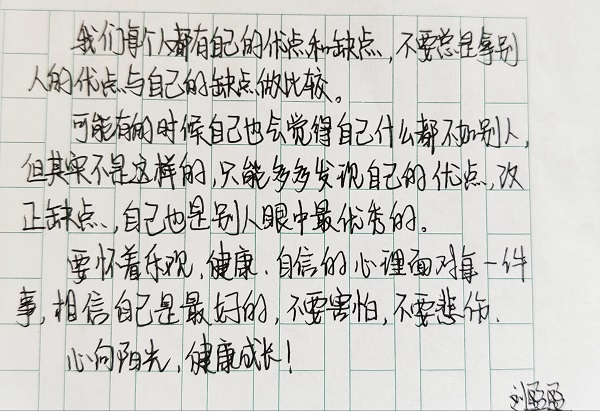 我们每个人都有自己的优点和缺点,不要总是拿别
人的优点与自己的缺点做比较。
可能有的时候自己也会觉得自己什么都不如别人,
但其实不是这样的,只能多多发现自己的优点,改
正缺点,自己也是别人眼中最优秀的。
要怀着乐观,健康、自信的心理面对每一件
事,相信自己是最好的,不要害怕,不要悲伤.
心向阳光,健康成长!